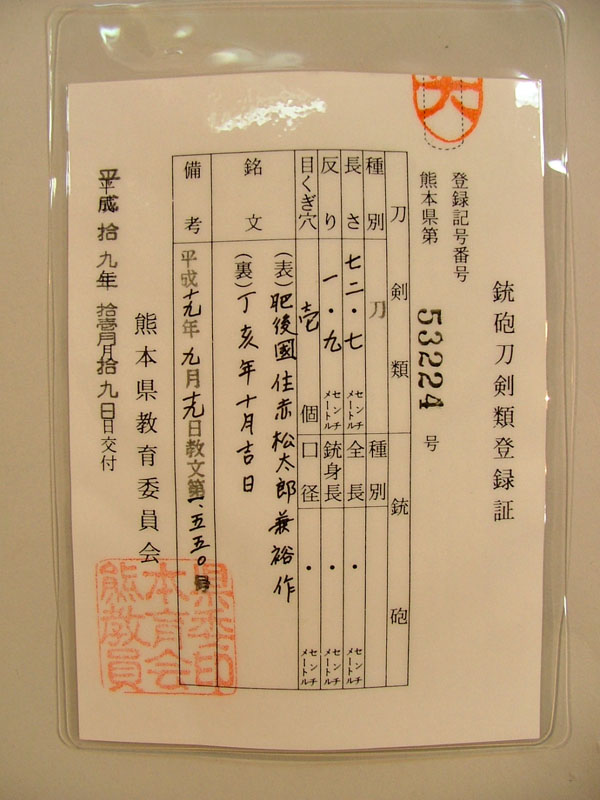 銃砲刀剣類登録証
登録記号番号
熊本県第 53224 号
刀剣類
種別 刀
長さ 七二・七 センチメートル
反り 一・九 センチメートル
目くぎ穴 壱 個
銃砲
種別
全長 ・ センチメートル
銃身長 ・ センチメートル
口径 ・ センチメートル
銘文
(表)肥後國住赤松太郎兼裕作
(裏)丁亥年十月吉日
備考
平成十九年九月十九日教文第一、五五〇号
熊本県教育委員会
平成拾九年拾壱月拾九日交付
熊本県
教育委
員会印